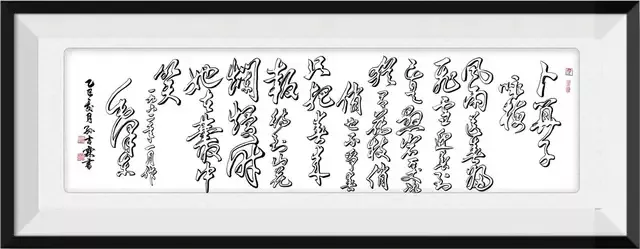 卜算子
咏梅
风雨送春归
飞雪迎春到
已是悬崖百丈冰
犹有花枝俏
俏也不争春
只把春来
报待到山花
烂漫时
她在丛中
笑
一九六一年十二月作
毛泽东